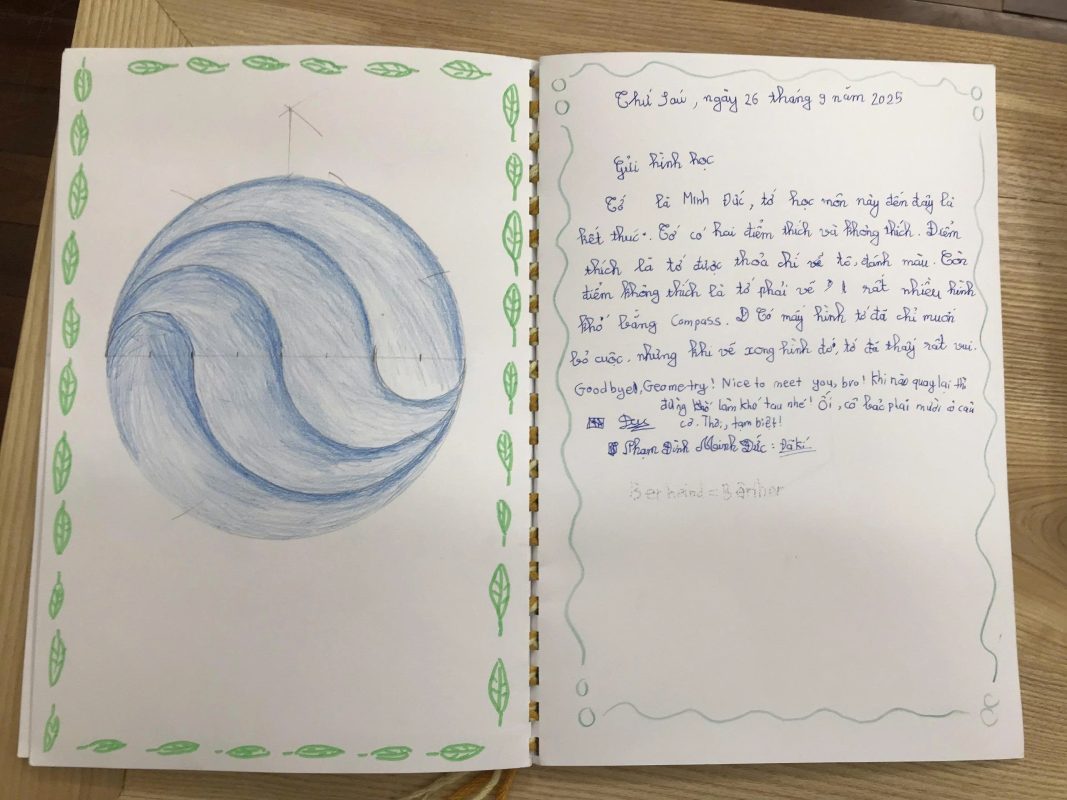 Thứ Sáu, ngày 26 tháng 9 năm 2025
Gửi hình học
Tớ là Minh Đức, tớ học môn này đến đây là
kết thúc. Tớ có hai điểm thích và không thích. Điểm
thích là tớ được thoả chí vẽ tô, đánh màu. Còn
điểm không thích là tớ phải vẽ rất nhiều hình
khó bằng Compass. Có mấy hình tớ đã chỉ muốn
bỏ cuộc, nhưng khi vẽ xong hình đó, tớ đã thấy rất vui.
Goodbye!, Geometry! Nice to meet you, bro! Khi nào quay lại thì
đừng làm khó tau nhé! Ối, cô bảo phải mười câu
cơ. Thôi, tạm biệt!
Phạm Đình Minh Đức: Đã kí.